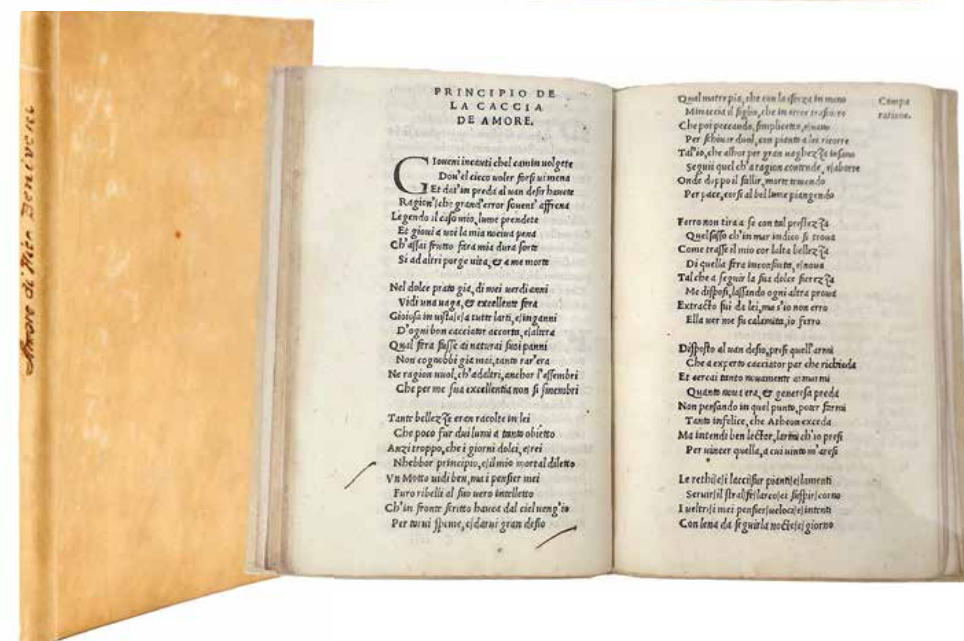 Amore di Hier. Benivieni
PRINCIPIO DE
LA CACCIA
DE AMORE.
Gioueni incauti chel camin uolgete
Dou'el cieco uoler forsi ui mena
Et dat'in preda al uan desir hauete
Ragion'(che grand'error souent' affrena
Legendo il caso mio, lume prendete
Et gioui a uoi la mia nociua pena
Ch'assai frutto fara mia dura sorte
Si ad altri porge uita, & a me morte
Nel dolce prato gia, di mei uerdi anni
Vidi una uaga, & excellente fera
Gioiosa in uista/e/a tutte larti, e/inganni
D'ogni bon cacciator accorta, e/altera
Qual fera fusse ai naturai suoi panni
Non cognobbi gia mai, tanto rar'era
Ne ragion uuol, ch'adaltri, anchor l'assembri
Che per me sua excellentia non si smembri
Tante bellezze eran racolte in lei
Che poco fur dui lumi a tanto obietto
Anzi troppo, che i giorni dolci, e/rei
Nhebbor principio, e/il mio mortal diletto
Vn Motto uidi ben, ma i pensier mei
Furo ribelli al suo uero intelletto
Ch'in fronte scritto hauea dal ciel ueng'io
Per torui speme, e/darui gran desio
Qual matre pia, che con la sferza in mano
Minaccia il figlio, che in error trascorso
Che poi peccando, simplicetto, e/uano
Per schiuar duol, con pianto a lei ricorre
Tal'io, che alhor per gran uaghezza insano
Seguii quel ch'a ragion contende, e/aborre
Onde doppo il fallir, morte temendo
Per pace, corsi al bel lume piangendo
Compa
ratione.
Ferro non tira a se con tal prestezza
Quel sasso ch'in mar indico si troua
Come trasse il mio cor lalta bellezza
Di quella fera inconsueta, e/noua
Tal che a seguir la sua dolce fierezza
Me disposi, lassando ogni altra proua
Extracto fui da lei, ma s'io non erro
Ella uer me fu calamita, io ferro
Disposto al uan desio, presi quell'armi
Che a experto cacciator par che richieda
Et cercai tanto nouamente armarmi
Quanto noua era, & generosa preda
Non pensando in quel punto, poter farmi
Tanto infelice, che Atheon exceda
Ma intendi ben lector, larmi ch'io presi
Per uincer quella, a cui uinto m'aresi
Le rethi/e/i lacci/fur pianti/e/lamenti
Seruir/il stral/fe/larco/ei suspir/corno
I ueltri/i mei pensier/ueloci/e/intenti
Con lena da seguirla nocte/e/giorno